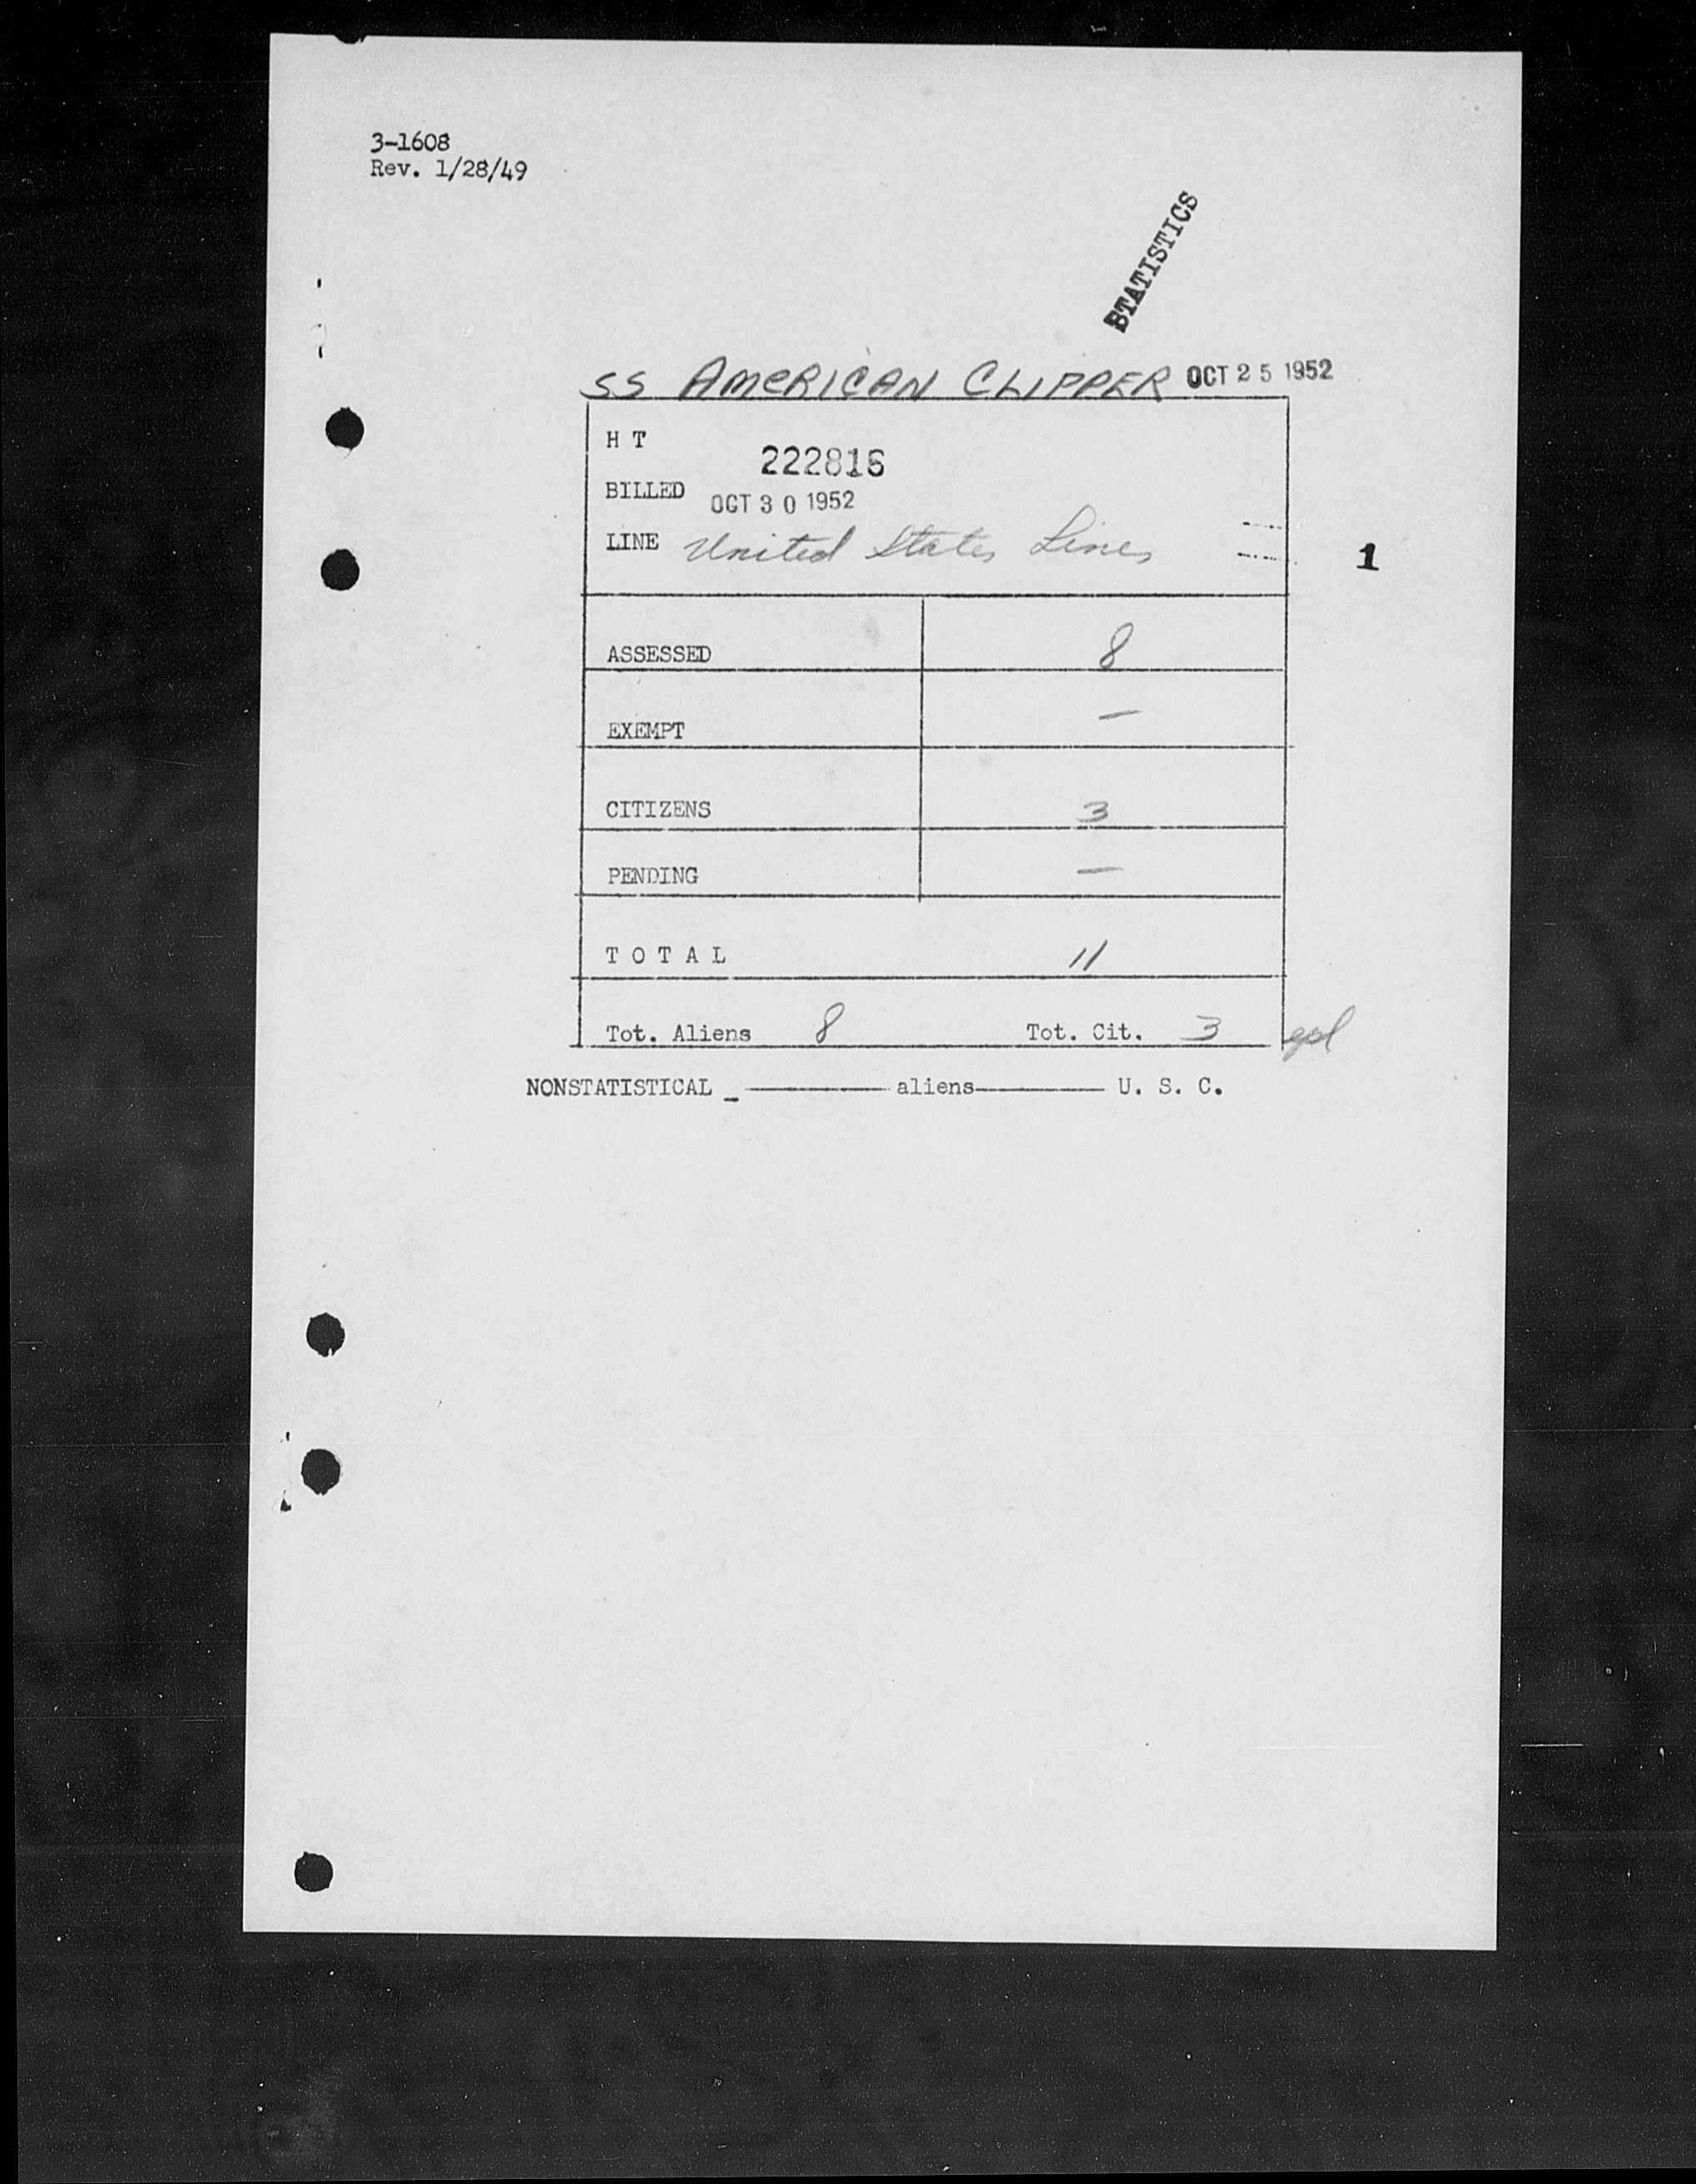 3-1608
Rev. 1/28/49
STATISTICS
SS AMERICAN CLIPPER OCT 25 1952
H T
222816
BILLED OCT 30 1952
LINE United States Lines
1
ASSESSED 8
EXEMPT —
CITIZENS 3
PENDING —
T O T A L 11
Tot. Aliens 8 Tot. Cit. 3
NONSTATISTICAL _ ———— aliens———— U. S. C.